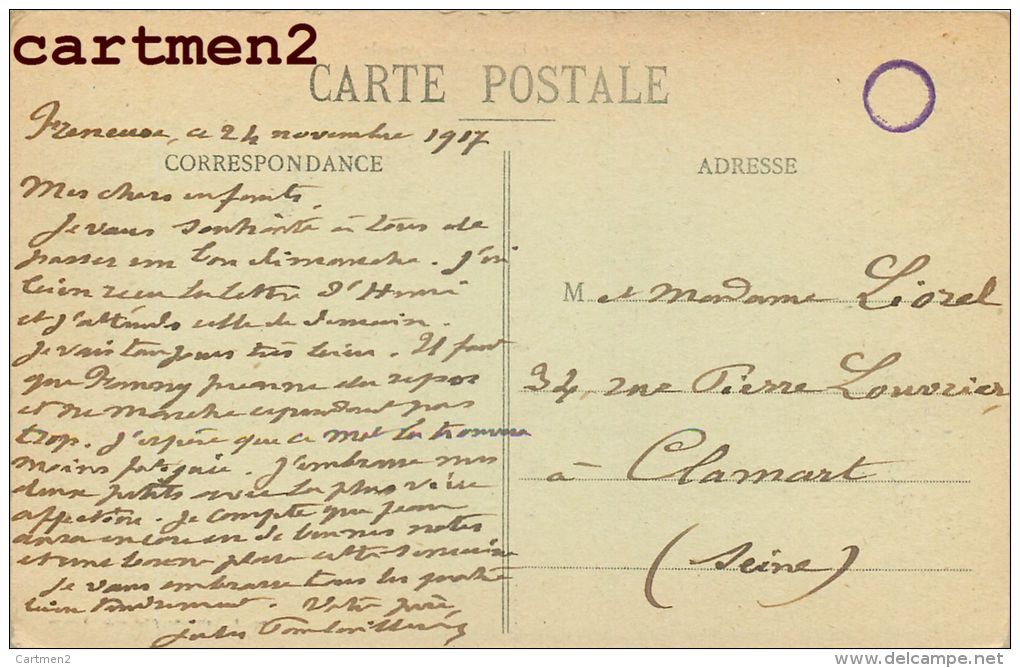 cartmen2
CARTE POSTALE
Freneuse, ce 24 novembre 1917
CORRESPONDANCE
ADRESSE
Mes chers enfants,
Je vous souhaite à tous de
passer un bon dimanche. J'ai
bien reçu la lettre d'Henri
et j'attends celle de demain.
Je vais toujours très bien. Il faut
que prenne du repos
et ne marche cependant pas
trop. J'espère que ce mot la trouvera
moins fatiguée. J'embrasse mes
deux petits avec la plus vive
affection. Je compte que Jean
aura encore eu de bonnes notes
et une bonne place cette semaine
Je vous embrasse tous les quatre
bien tendrement. Votre père,
Jules
M et Madame Liorel
34, rue Pierre Louvrier,
à Clamart
(Seine)
Cartmen2
http://www.delcampe.net